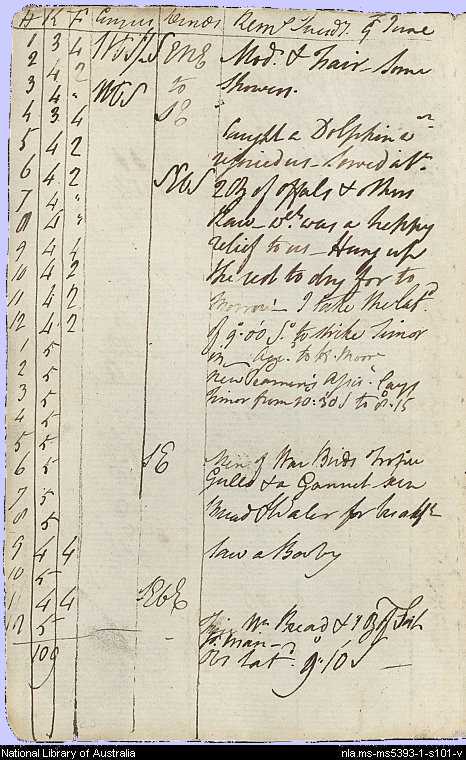 H K F Courses Winds Remks Tuesdy 9 June
1 3 4 WSW ENE Mod. & Fair some
2 4 2
3 4 " WBS to Showers.
4 3 4 SE
5 4 2 Caught a Dolphin wch
6 4 2 relieved us served abt
7 4 " SBW 2 Oz of offals & others
8 4 " Raw wch was a happy
9 4 4 relief to us Hung up
10 4 2 the rest to dry for to
11 4 2 morrow I take the Latd
12 4 2 of 9°.00 S. to strike Timor
1 5 in agre. to Mr. Moore
2 5 New
3 5 Timor from 10:30 S to 8.15
4 5
5 5
6 5 SE Men of War Birds Tropic
7 5 Gulls & a Gannet seen
8 5 Bread & Water for breakft
9 4 4 Saw a Booby
10 5
11 4 4 SEbE
12 5 Bread & 1 Oz of fish
108 pr. man
Obs Lat. 9°.10 S
National Library of Australia nla.ms-ms5393-1-s101-v